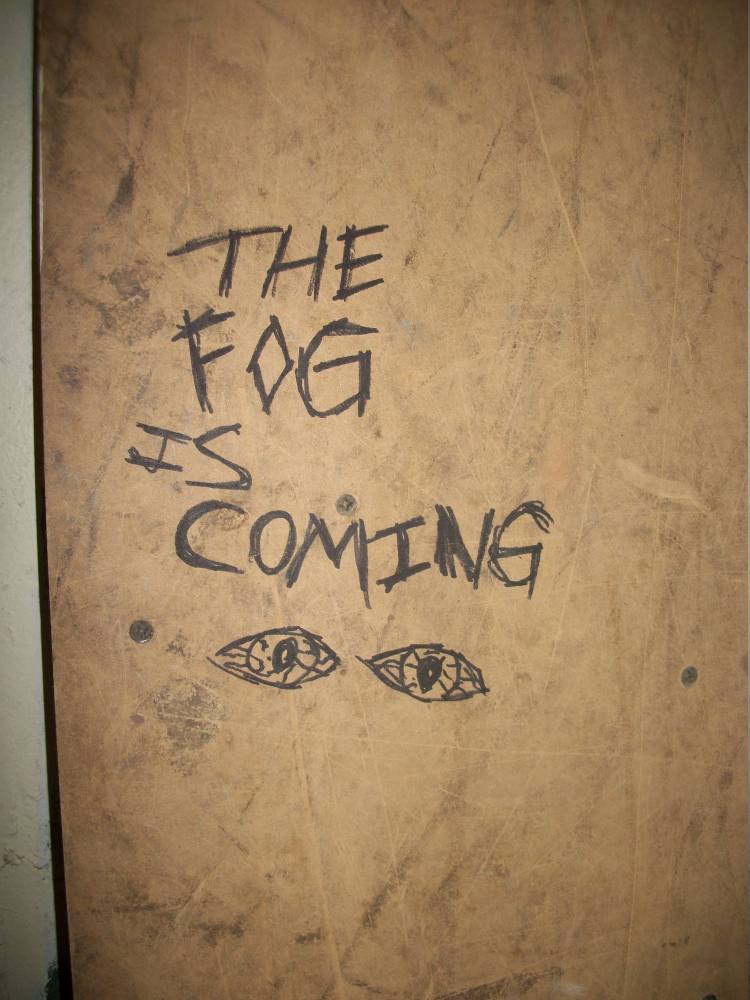 THE
FOG
IS
COMING